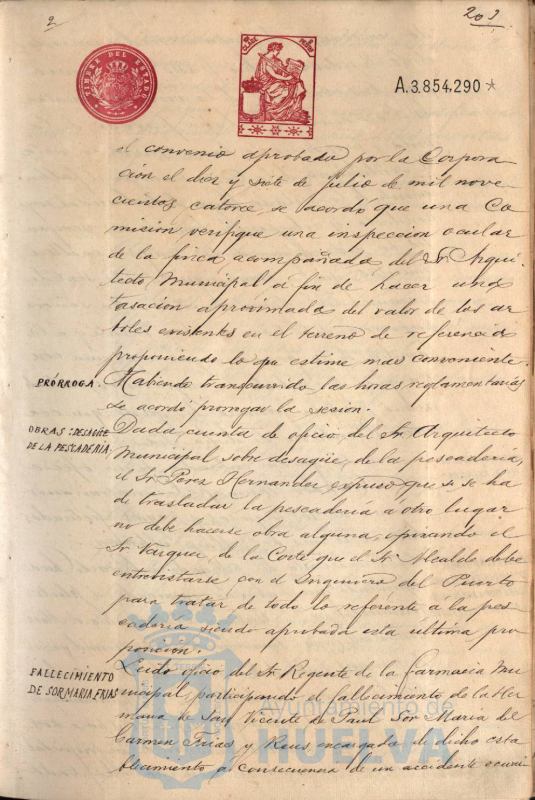 2
203
TIMBRE DEL ESTADO
A.3.854,290 *
el convenio aprobado por la Corpora
ción el diez y siete de julio de mil nove-
cientos catorce, se acordó que una Co
mision verifique una inspección ocular
de la finca acompañada del Sr. Arqui-
tecto Municipal á fin de hacer una
tasacion aproximada del valor de los ar
boles existentes en el terreno de referencia
proponiendo lo que estime mas conveniente.
PRÓRROGA.
Habiendo transcurrido las horas reglamentarias
se acordó prorrogar la sesion.
OBRAS: DESAGÜE
DE LA PESCADERIA
Dada cuenta de oficio del Sr. Arquitecto
Municipal sobre desagüe de la pescaderia,
el Sr. Perez Hernandez expuso que si se ha
de trasladar la pescaderia a otro lugar
no debe hacerse obra alguna, opinando el
Sr. Vazquez de la Corte que el Sr. Alcalde debe
entrevistarse con el Ingeniero del Puerto
para tratar de todo lo referente á la pes
caderia siendo aprobada esta última pro
posicion.
FALLECIMIENTO
DE SOR MARIA FRIAS
Leido oficio del Sr. Regente de la Farmacia Mu
nicipal, participando el fallecimiento de la Her
mana de San Vicente de Paul Sor Maria del
Carmen Frias y Reus, encargada de dicho esta
blecimiento á consecuencia de un accidente ocurri
Ayuntamiento de
HUELVA